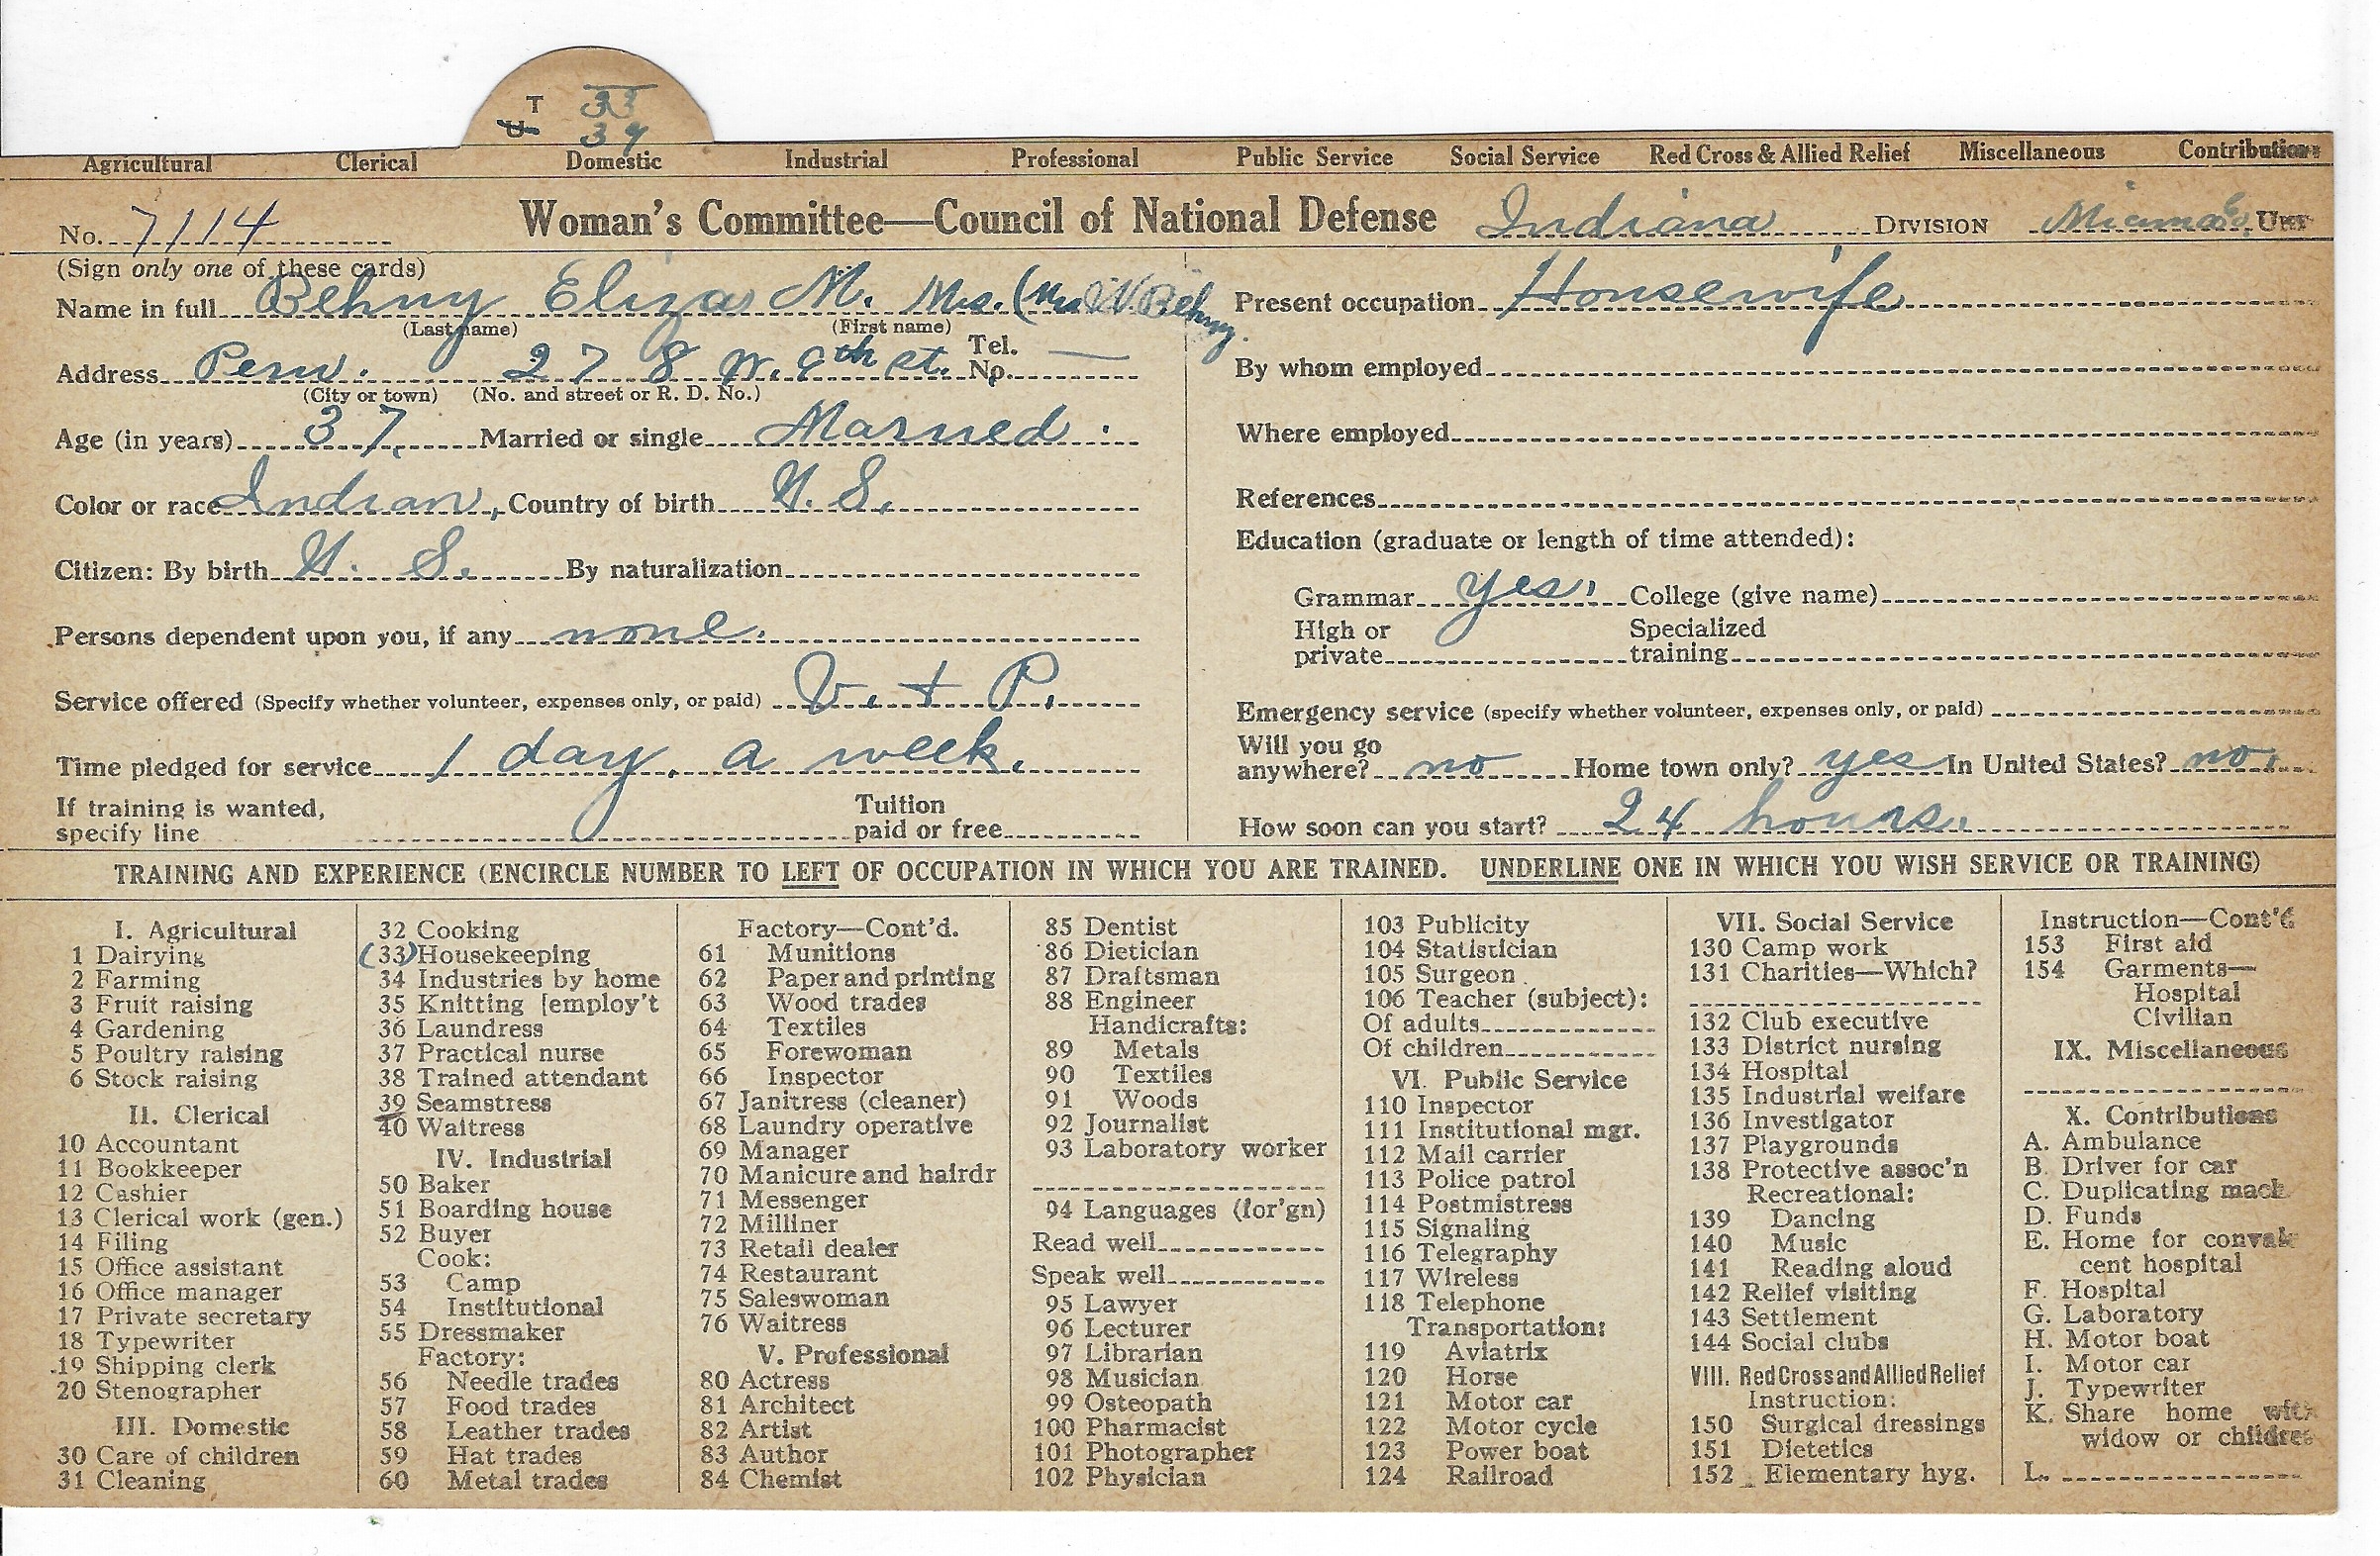 T 33
U 39
Agricultural Clerical Domestic Industrial Professional Public Service Social Service Red Cross & Allied Relief Miscellaneous Contributions
No. 7114 Woman's Committee—Council of National Defense Indiana DIVISION Miami Co. UNIT
(Sign only one of these cards)
Name in full Behny Eliza M. Mrs. (Mrs. W. Behny
(Last name) (First name)
Address Peru. 278 W. 9th St. Tel. No. —
(City or town) (No. and street or R. D. No.)
Age (in years) 37. Married or single Married.
Color or race Indian, Country of birth U. S.
Citizen: By birth U. S. By naturalization
Persons dependent upon you, if any none.
Service offered (Specify whether volunteer, expenses only, or paid) V. + P.
Time pledged for service 1 day. a week.
If training is wanted,
specify line Tuition paid or free
Present occupation Housewife
By whom employed
Where employed
References
Education (graduate or length of time attended):
Grammar yes. College (give name)
High or private Specialized training
Emergency service (specify whether volunteer, expenses only, or paid)
Will you go anywhere? no Home town only? yes In United States? no.
How soon can you start? 24 hours.
TRAINING AND EXPERIENCE (ENCIRCLE NUMBER TO LEFT OF OCCUPATION IN WHICH YOU ARE TRAINED. UNDERLINE ONE IN WHICH YOU WISH SERVICE OR TRAINING)
I. Agricultural
1 Dairying
2 Farming
3 Fruit raising
4 Gardening
5 Poultry raising
6 Stock raising
II. Clerical
10 Accountant
11 Bookkeeper
12 Cashier
13 Clerical work (gen.)
14 Filing
15 Office assistant
16 Office manager
17 Private secretary
18 Typewriter
19 Shipping clerk
20 Stenographer
III. Domestic
30 Care of children
31 Cleaning
32 Cooking
(33) Housekeeping
34 Industries by home
35 Knitting [employ't
36 Laundress
37 Practical nurse
38 Trained attendant
39 Seamstress
40 Waitress
IV. Industrial
50 Baker
51 Boarding house
52 Buyer
Cook:
53 Camp
54 Institutional
55 Dressmaker
Factory:
56 Needle trades
57 Food trades
58 Leather trades
59 Hat trades
60 Metal trades
Factory—Cont'd.
61 Munitions
62 Paper and printing
63 Wood trades
64 Textiles
65 Forewoman
66 Inspector
67 Janitress (cleaner)
68 Laundry operative
69 Manager
70 Manicure and hairdr
71 Messenger
72 Milliner
73 Retail dealer
74 Restaurant
75 Saleswoman
76 Waitress
V. Professional
80 Actress
81 Architect
82 Artist
83 Author
84 Chemist
85 Dentist
86 Dietician
87 Draftsman
88 Engineer
Handicrafts:
89 Metals
90 Textiles
91 Woods
92 Journalist
93 Laboratory worker
94 Languages (for'gn)
Read well
Speak well
95 Lawyer
96 Lecturer
97 Librarian
98 Musician
99 Osteopath
100 Pharmacist
101 Photographer
102 Physician
103 Publicity
104 Statistician
105 Surgeon
106 Teacher (subject):
Of adults
Of children
VI. Public Service
110 Inspector
111 Institutional mgr.
112 Mail carrier
113 Police patrol
114 Postmistress
115 Signaling
116 Telegraphy
117 Wireless
118 Telephone
Transportation:
119 Aviatrix
120 Horse
121 Motor car
122 Motor cycle
123 Power boat
124 Railroad
VII. Social Service
130 Camp work
131 Charities—Which?
132 Club executive
133 District nursing
134 Hospital
135 Industrial welfare
136 Investigator
137 Playgrounds
138 Protective assoc'n
Recreational:
139 Dancing
140 Music
141 Reading aloud
142 Relief visiting
143 Settlement
144 Social clubs
VIII. Red Cross and Allied Relief
Instruction:
150 Surgical dressings
151 Dietetics
152 Elementary hyg.
Instruction—Cont'd
153 First aid
154 Garments—
Hospital
Civilian
IX. Miscellaneous
X. Contributions
A. Ambulance
B. Driver for car
C. Duplicating mach.
D. Funds
E. Home for convales
cent hospital
F. Hospital
G. Laboratory
H. Motor boat
I. Motor car
J. Typewriter
K. Share home with
widow or children
L.